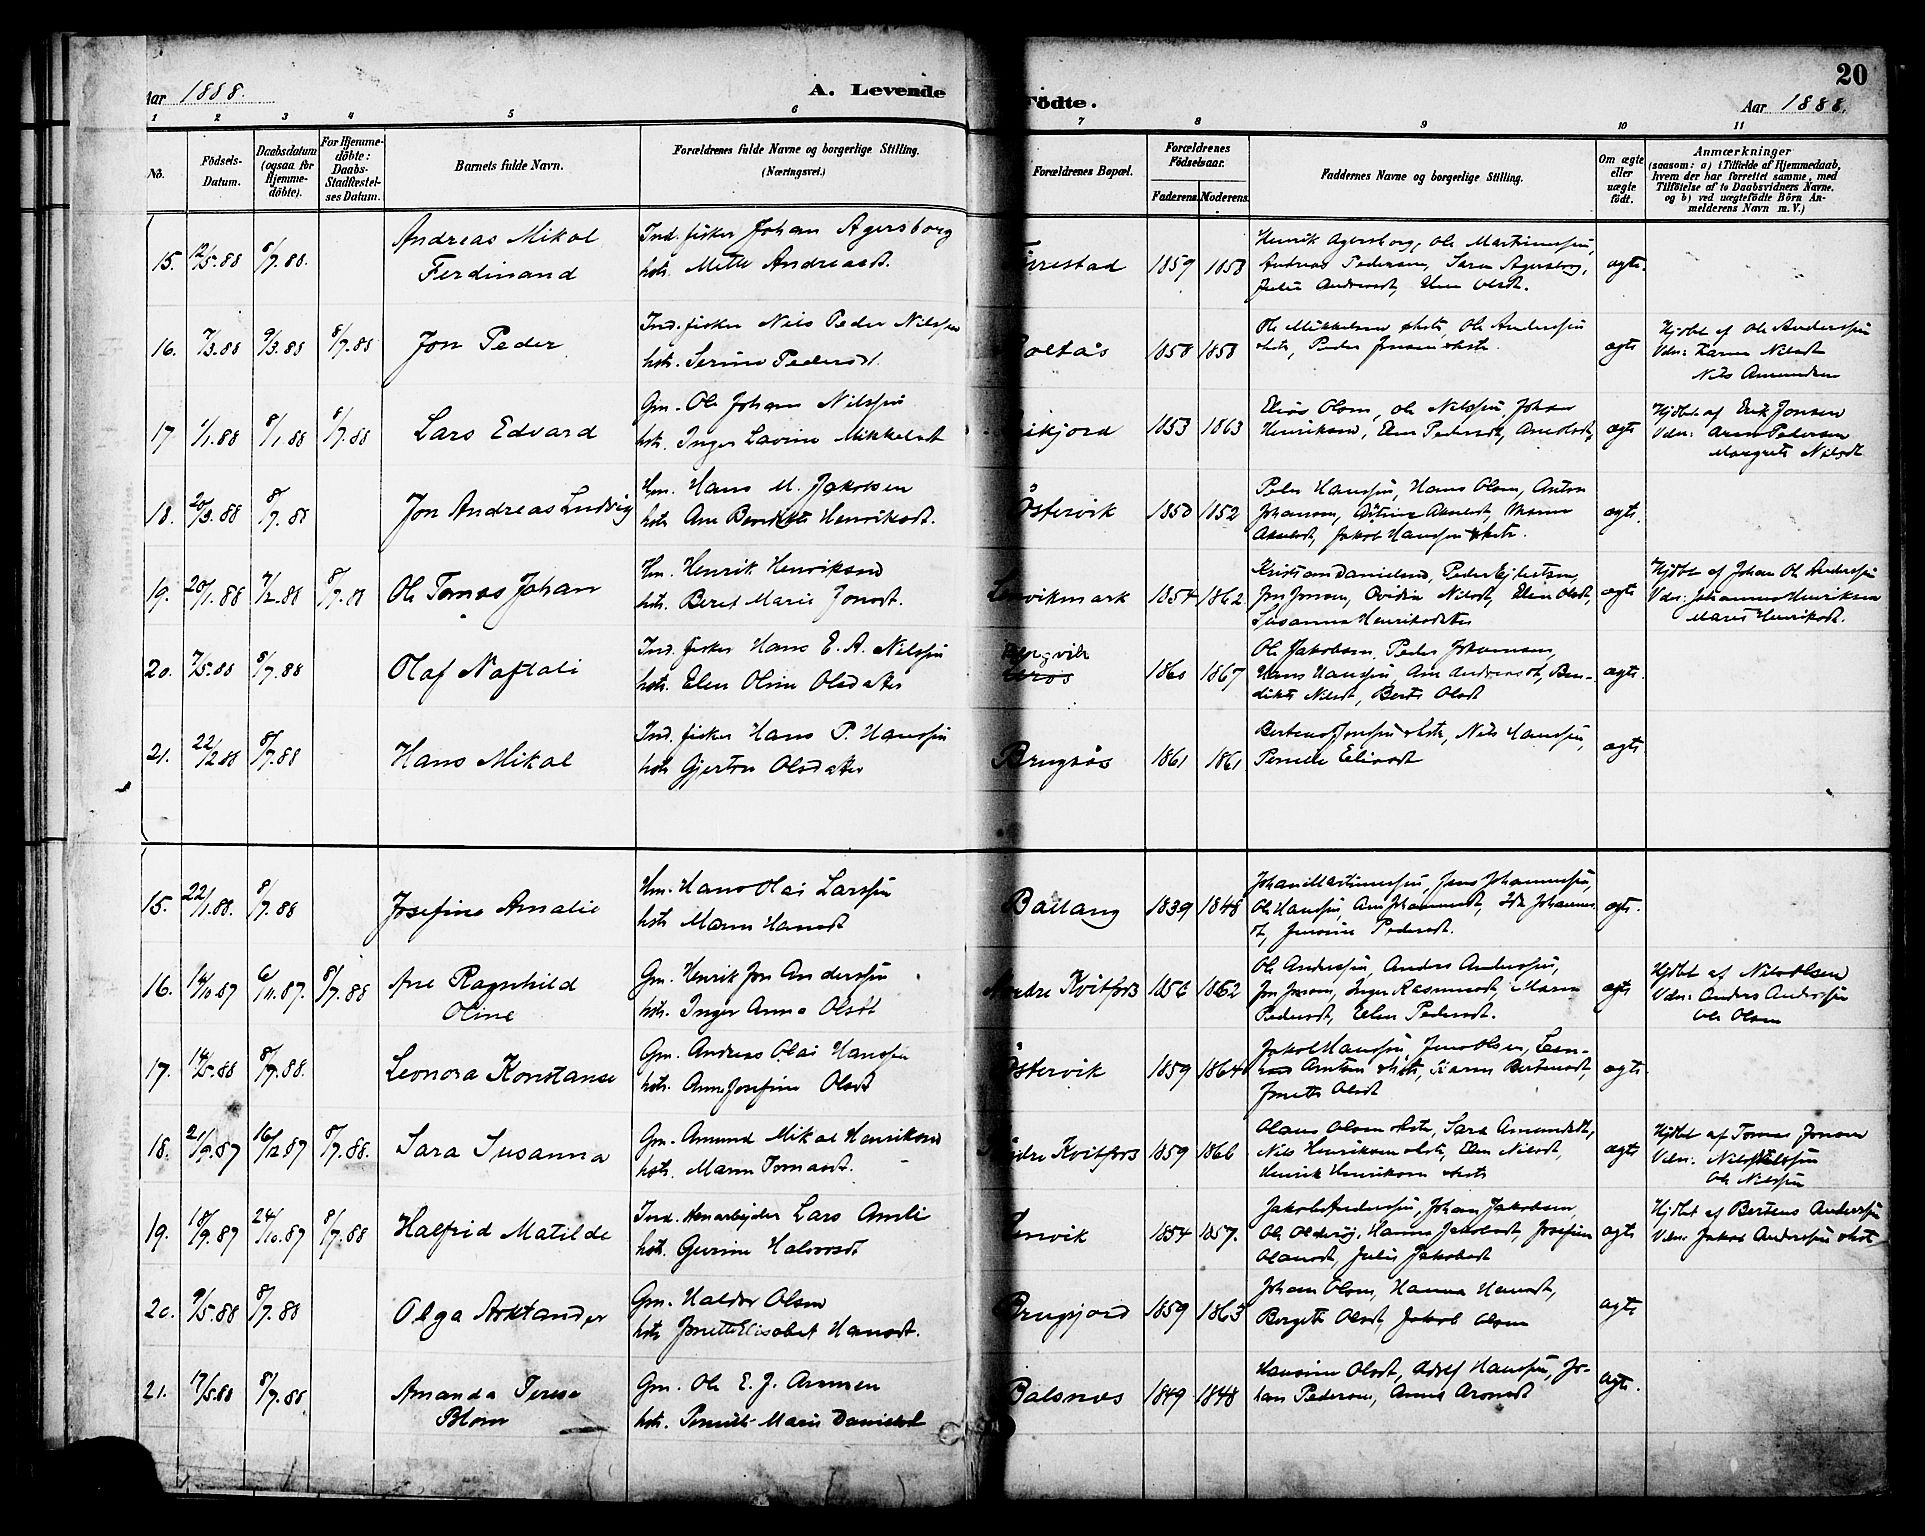 Aar 1888.
A. Levende
Födte.
20
Aar 1888.
1 2 3 4 5 6 7 8 9 10 11
No.
Födsels-
Datum.
Daabsdatum
(ogsaa for
Hjemme-
döbte).
For Hjemme-
döbte:
Daabs-
Stadfæstel-
ses Datum.
Barnets fulde Navn.
Forældrenes fulde Navne og borgerlige Stilling.
(Næringsvei.)
Forældrenes Bopæl.
Forældrenes
Födselsaar.
Faderens. Moderens.
Faddernes Navne og borgerlige Stilling.
Om ægte
eller
uægte
födt.
Anmærkninger
(saasom: a) i Tilfælde af Hjemmedaab,
hvem der har forrettet samme, med
Tilföielse af to Daabsvidners Navne.
og b) ved uægtefödte Börn An-
melderens Navn m. V.)
15. 12/5.88 8/7.88.
Andreas Mikal
Ferdinand
Ind. fisker Johan Agersborg
hstr. Mette Andreasdt.
1859 1858
Henrik Agersborg, Ole Martinussen,
Andreas Pedersen, Sara Agersborg,
Julie Andreasdt, Elen Olsdt.
ægte.
16. 7/3.88 9/3.88 8/7.88
Jon Peder
Ind. fisker Nils Peder Nilssen
hstr. Serine Pedersdt.
1858 1858
Ole Mikkelsen & hstr, Ole Anderssen
& hstr, Peder Jonsen & hstr.
ægte
Hjdbt af Ole Anderssen
Vdn: Karen Nilsdt
Nils Amundsen
17. 1/1.88 8/1.88 8/7.88
Lars Edvard
Gm. Ole Johan Nilssen
hstr. Inger Lavine Mikkelsdt
1853 1863
Elias Olsen, Ole Nilssen, Johan
Henriksen, Elen Pedersdt, Ane Olsdt,
ægte
Hjdbt af Erik Jonsen
Vdn: Aron Pedersen
Margrete Nilsdt
18. 20/3.88 8/7.88
Jon Andreas Ludvig
Hm. Hans M. Jakobsen
hstr. Ane Bendikte Henriksdt.
Östervik
1850 1852
Peder Hanssen, Hans Olsen, Anton
Johansen,
Jakob Hanssen & hstr.
ægte.
19. 20/1.88 7/2.88 8/7.88
Ole Tomas Johan
Hm. Henrik Henriksen
hstr. Beret Marie Jonsdt.
Lenvikmark
1854 1862
Kristian Danielsen, Peder Ejlertsen,
Jon Jonsen, Ovidia Nilsdt, Elen Olsdt,
Susanna Henriksdatter
ægte
Hjdbt af Johan Ole Anderssen
Vdn: Johannes Henriksen
Maret Henriksdt.
20. 7/5.88 8/7.88
Olaf Naftali
Ind. fisker Hans E. A. Nilssen
hstr. Elen Oline Olsdatter
1860 1867
Ole Jakobsen, Peder Johansen,
Hans Hanssen, Ane Andreasdt, Ben-
dikte Nilsdt, Berte Olsdt
ægte.
21. 22/2.88 8/7.88
Hans Mikal
Ind. fisker Hans P. Hanssen
hstr Gjertru Olsdatter
1861 1861
Berteus Jonssen & hstr, Nils Hanssen,
Pernille Eliasdt
ægte
15. 22/1.88. 8/7.88
Josefine Amalie
Hm. Hans Olai Larssen
hstr Maren Hansdt
Ballang
1839 1848
Johan Martinussen, Jens Johannessen,
Ole Hanssen, Ane Johannesdt, Ida Johannes-
dt, Jensine Pedersdt.
ægte.
16. 14/10.87 6/11.87. 8/7.88
Ane Ragnhild
Oline
Gm. Henrik Jon Anderssen
hstr. Inger Anna Olsdt
Nordre Kvitfors
1856 1862
Ole Anderssen, Anders Anderssen,
Jon Jonsen, Inger Rasmusdt, Maren
Pedersdt, Elen Pedersdt.
ægte
Hjdbt af Nils Olsen
Vdn: Anders Anderssen
Ole Olsen
17. 14/5.88 8/7.88.
Leonora Konstanse
Gm. Andreas Olai Hanssen
hstr. Anne Josefine Olsdt
Östervik
1859 1864
Jakob Hanssen, Jens Olsen,
Antonsen & hstr,
Jonette Olsdt
ægte
18. 21/9.87 16/12.87 8/7.88.
Sara Susanna
Gm. Amund Mikal Henriksen
hstr. Maren Tomasdt.
Nordre Kvitfors
1859 1866
Olaus Olsen & hstr, Sara Amundsdt,
Nils Henriksen & hstr, Elen Nilsdt,
Henrik Henriksen & hstr
ægte
Hjdbt af Tomas Jonsen
Vdn: Nils Nilssen
Ole Nilssen
19. 18/9.87 24/10.87 8/7.88
Halfrid Matilde
Ind. Stenarbejder Lars Amli
hstr. Gurine Halvorsdt
Lenvik
1854 1857.
Jakob Anderssen, Johan Jakobsen,
Hanna Jakobsdt, Josefine
Olausdt, Julie Jakobsdt
ægte
Hjdbt af Berteus Anderssen
Vdn: Jakob Anderssen & hstr
20. 9/5.88 8/7.88
Olga Arktander
Gm. Haldor Olsen
hstr Jonette Elisabet Hansdt.
1859 1863
Johan Olsen, Hanna Hansdt,
Bergete Olsdt, Jakob Olsen
ægte
21. 17/5.88 8/7.88
Amanda Terese
Blom
Gm. Ole E. J. Arnesen
hstr. Pernille Marie Danielsd
Balsnes
1849 1848
Hansine Olsdt, Adolf Hanssen, Jo-
han Pedersen, Anna Aronsdt
ægte.